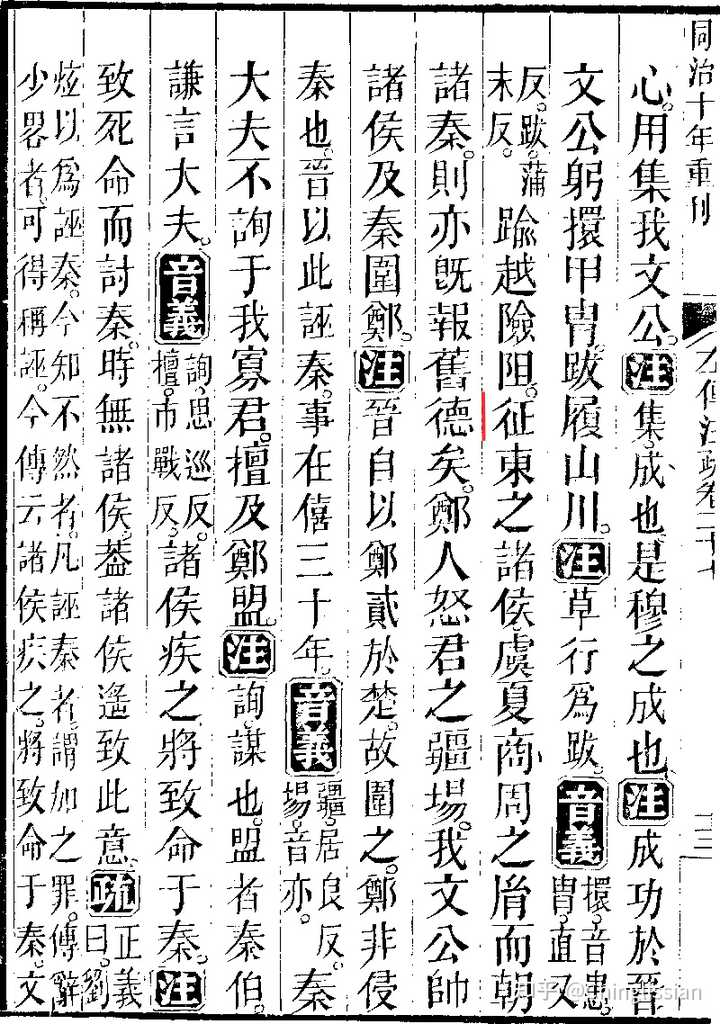 同治十年重刊
左傳注疏卷二十七
三
心。用集我文公。注集。成也。是穆之成也。注成功於晉
文公躬擐甲冑。跋履山川。注草行爲跋。音義擐。音患。冑。直又
反。跋。蒲末反。踰越險阻。征東之諸侯。虞夏商周之胤而朝
諸秦。則亦旣報舊德矣。鄭人怒君之疆埸。我文公帥
諸侯及秦圍鄭。注晉自以鄭貳於楚。故圍之。鄭非侵
秦也。晉以此誣秦。事在僖三十年。音義疆。居良反。埸。音亦。秦
大夫不詢于我寡君。擅及鄭盟。注詢。謀也。盟者秦伯。
謙言大夫。音義詢。思巡反。擅。市戰反。諸侯疾之。將致命于秦。注
致死命而討秦。時無諸侯。葢諸侯遙致此意。疏正義曰。劉
炫以爲誣秦。今知不然者。凡誣秦者。謂加之罪。傳辭
少畧者。可得稱誣。今傳云諸侯疾之。將致命于秦。文
知乎 @